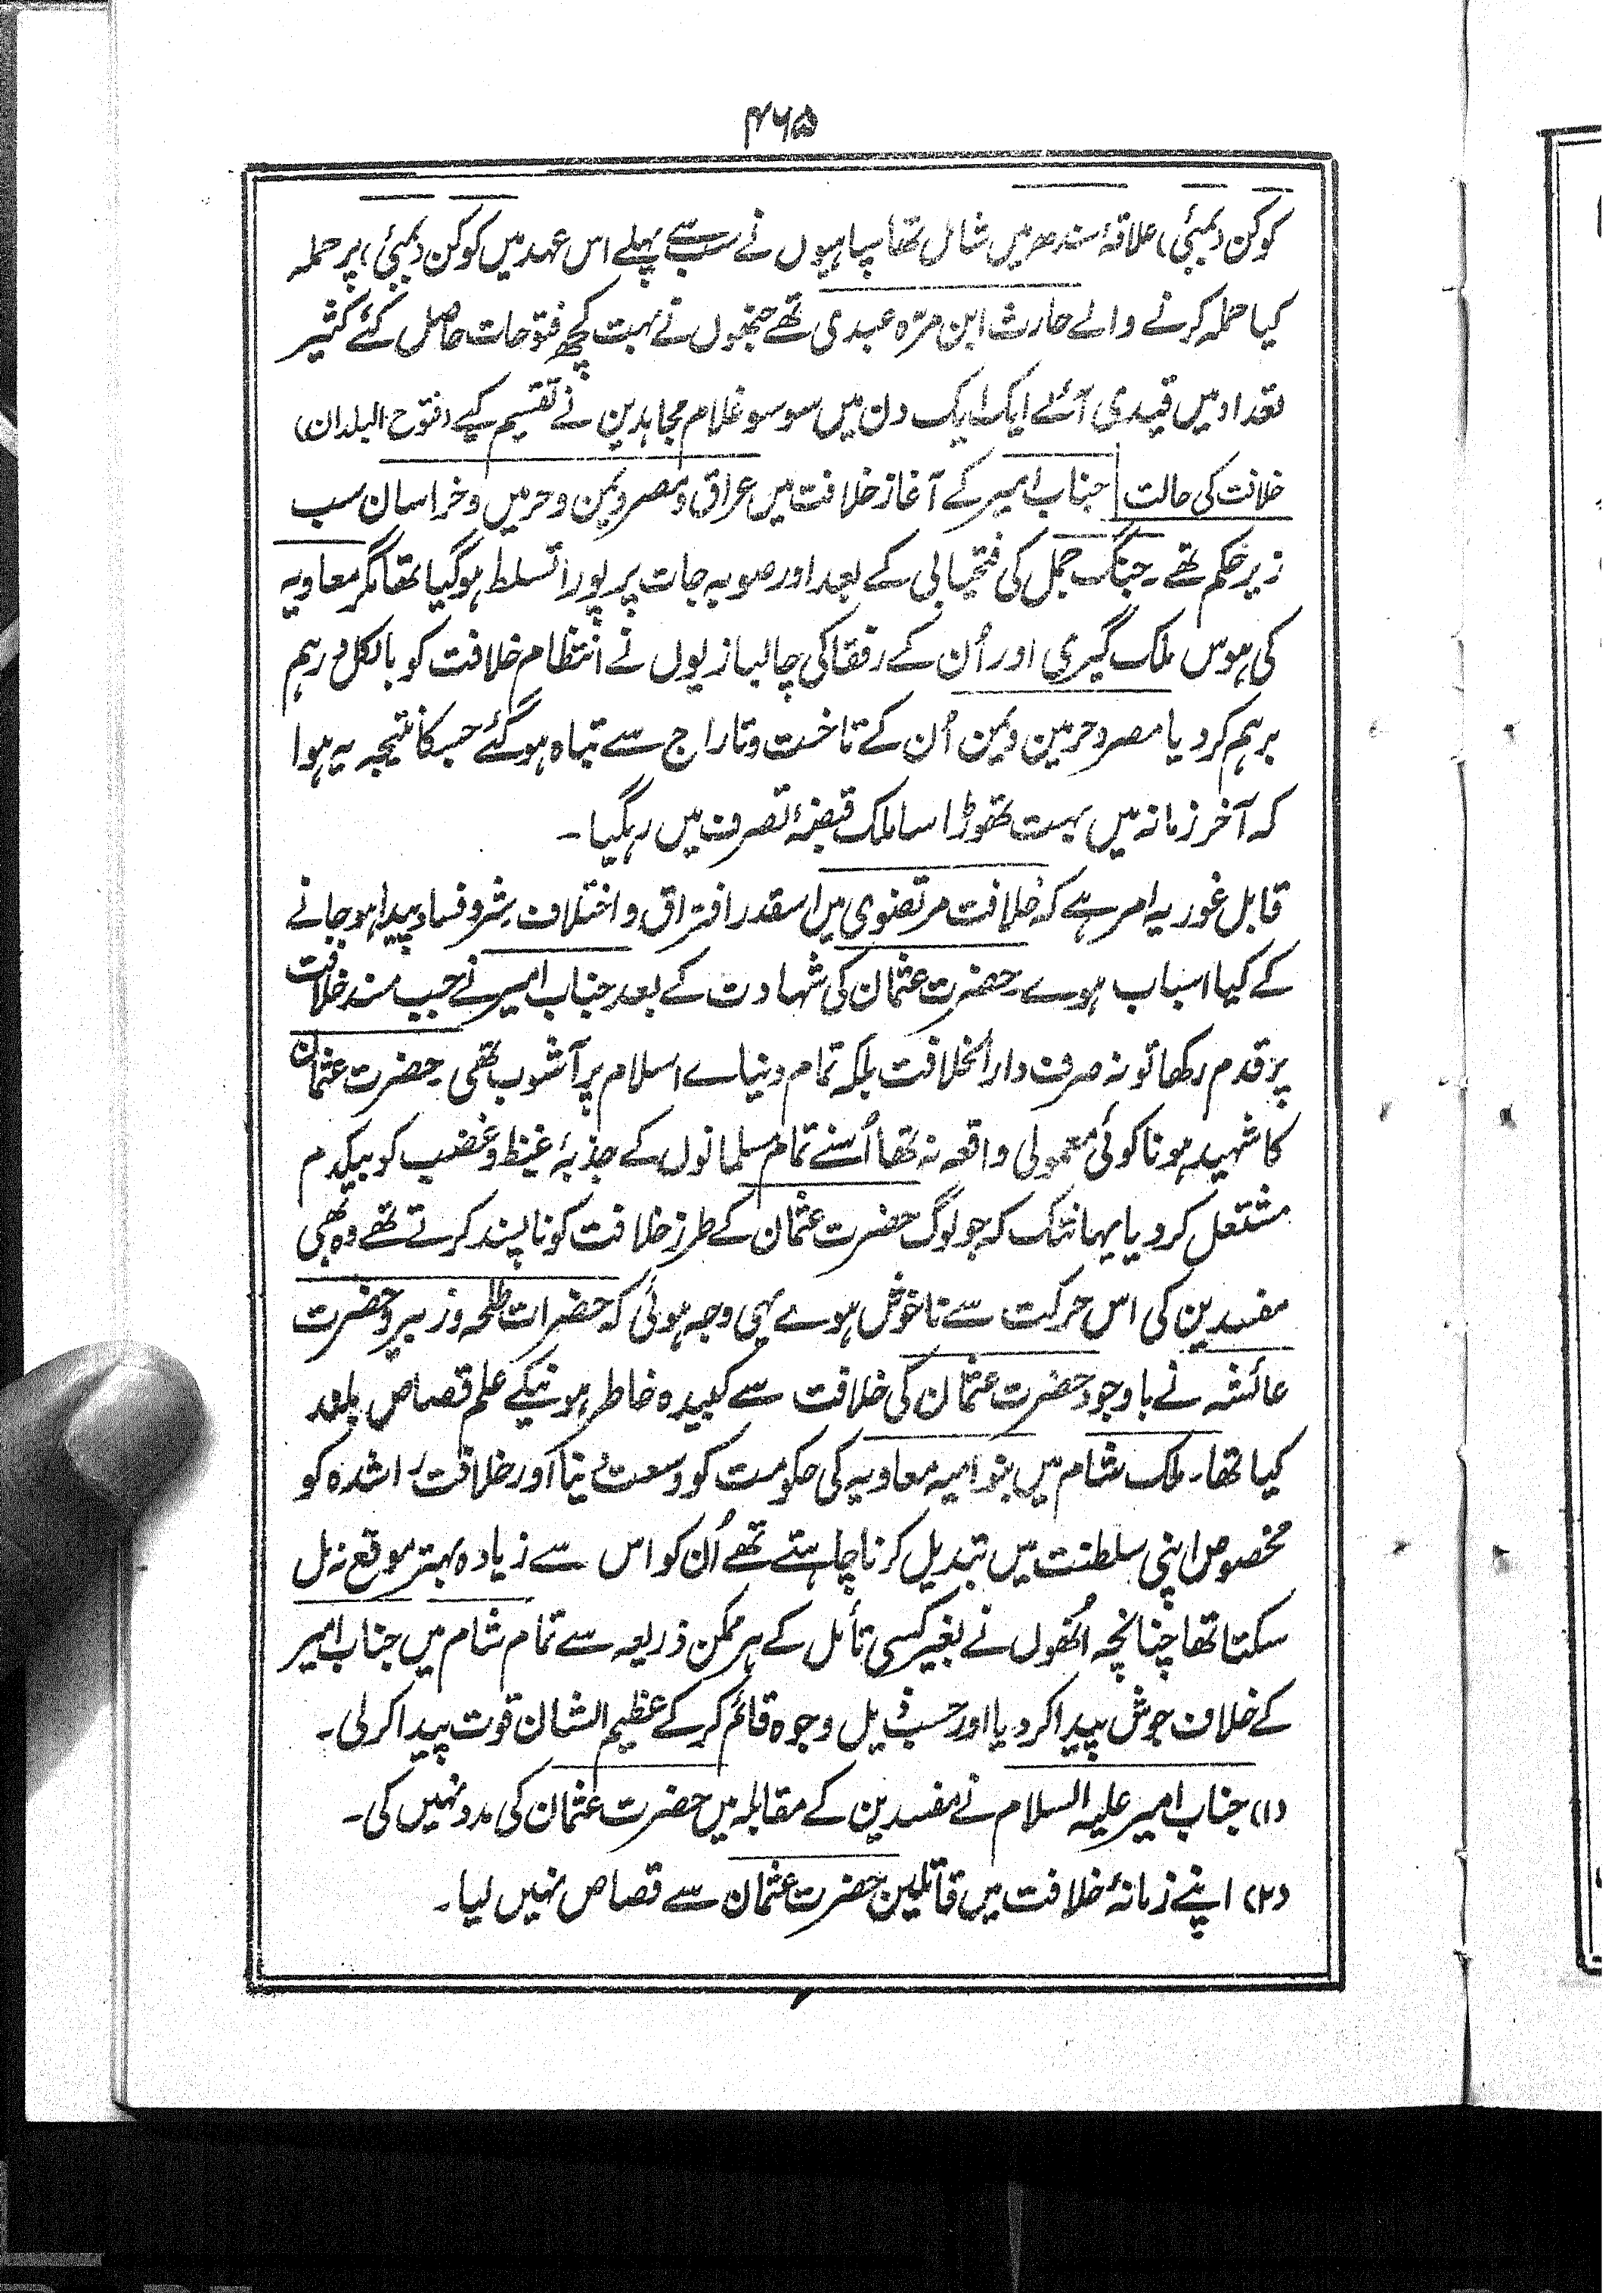 ۴۶۵
کوکن (بمبئی) علاقۂ سندھ میں شامل تھا سپاہیوں نے سب سے پہلے اس عہد میں کوکن (بمبئی) پر حملہ
کیا حملہ کرنے والے حارث ابن مرّہ عبدی تھے جنھوں نے بہت کچھ فتوحات حاصل کئے کثیر
تعداد میں قیدی آئے ایک ایک دن میں سو سو غلام مجاہدین نے تقسیم کیے (فتوح البلدان)
خلافت کی حالت جناب امیر کے آغاز خلافت میں عراق و مصر و یمن و حرمین و خراسان سب
زیر حکم تھے۔ جنگ جمل کی فتحیابی کے بعد اور صوبہ جات پر پورا تسلط ہو گیا تھا مگر معاویہ
کی ہوس ملک گیری اور اُن کے رفقا کی چالبازیوں نے انتظام خلافت کو بالکل درہم
برہم کر دیا مصر و حرمین و یمن اُن کے تاخت و تاراج سے تباہ ہو گئے جسکا نتیجہ یہ ہوا
کہ آخر زمانہ میں بہت تھوڑا سا ملک قبضۂ تصرف میں رہگیا۔
قابل غور یہ امر ہے کہ خلافت مرتضوی میں اسقدر افتراق و اختلاف شر و فساد پیدا ہو جانے
کے کیا اسباب ہوے۔ حضرت عثمان کی شہادت کے بعد جناب امیر نے جب مسند خلافت
پر قدم رکھا تو نہ صرف دارالخلافت بلکہ تمام دنیاے اسلام پر آشوب تھی۔ حضرت عثمان
کا شہید ہونا کوئی معمولی واقعہ نہ تھا اُسنے تمام مسلمانوں کے جذبۂ غیظ و غضب کو یکدم
مشتعل کر دیا یہانتک کہ جو لوگ حضرت عثمان کے طرز خلافت کو ناپسند کرتے تھے وہ بھی
مفسدین کی اس حرکت سے ناخوش ہوے یہی وجہ ہوئی کہ حضرات طلحہ و زبیر و حضرت
عائشہ نے باوجود حضرت عثمان کی خلافت سے کبیدہ خاطر ہونیکے علم قصاص بلند
کیا تھا۔ ملک شام میں بنو امیہ معاویہ کی حکومت کو وسعت دینا اور خلافت راشدہ کو
مخصوص اپنی سلطنت میں تبدیل کرنا چاہتے تھے اُن کو اس سے زیادہ بہتر موقع نہ مل
سکتا تھا چنانچہ اُنھوں نے بغیر کسی تأمل کے ہر ممکن ذریعہ سے تمام شام میں جناب امیر
کے خلاف جوش پیدا کر دیا اور حسب ذیل وجوہ قائم کر کے عظیم الشان قوت پیدا کر لی۔
(۱) جناب امیر علیہ السلام نے مفسدین کے مقابلہ میں حضرت عثمان کی مدد نہیں کی۔
(۲) اپنے زمانۂ خلافت میں قاتلین حضرت عثمان سے قصاص نہیں لیا۔